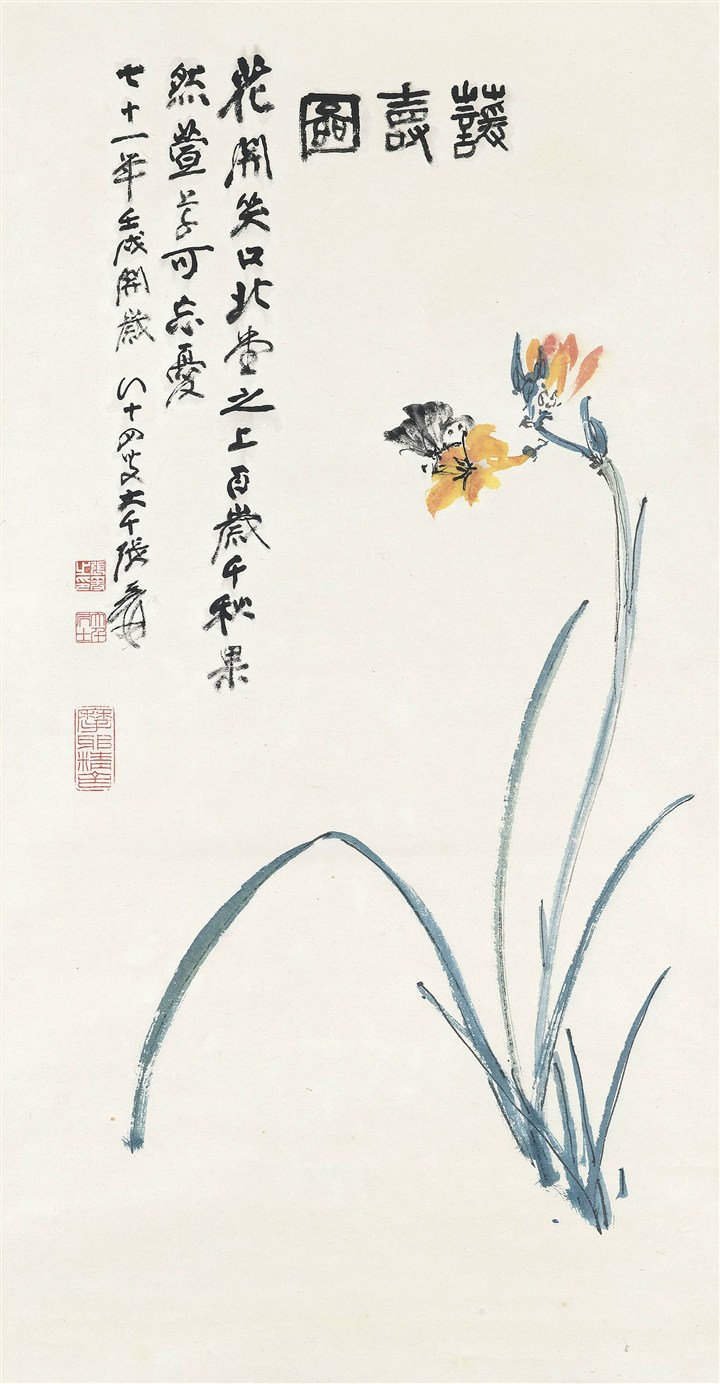 蘐壽圖
花開笑口北堂之上百歲千秋果
然萱草可忘憂
七十一年壬戌開歲 八十四叟大千張爰
張爰之印
大千居士
摩耶精舍